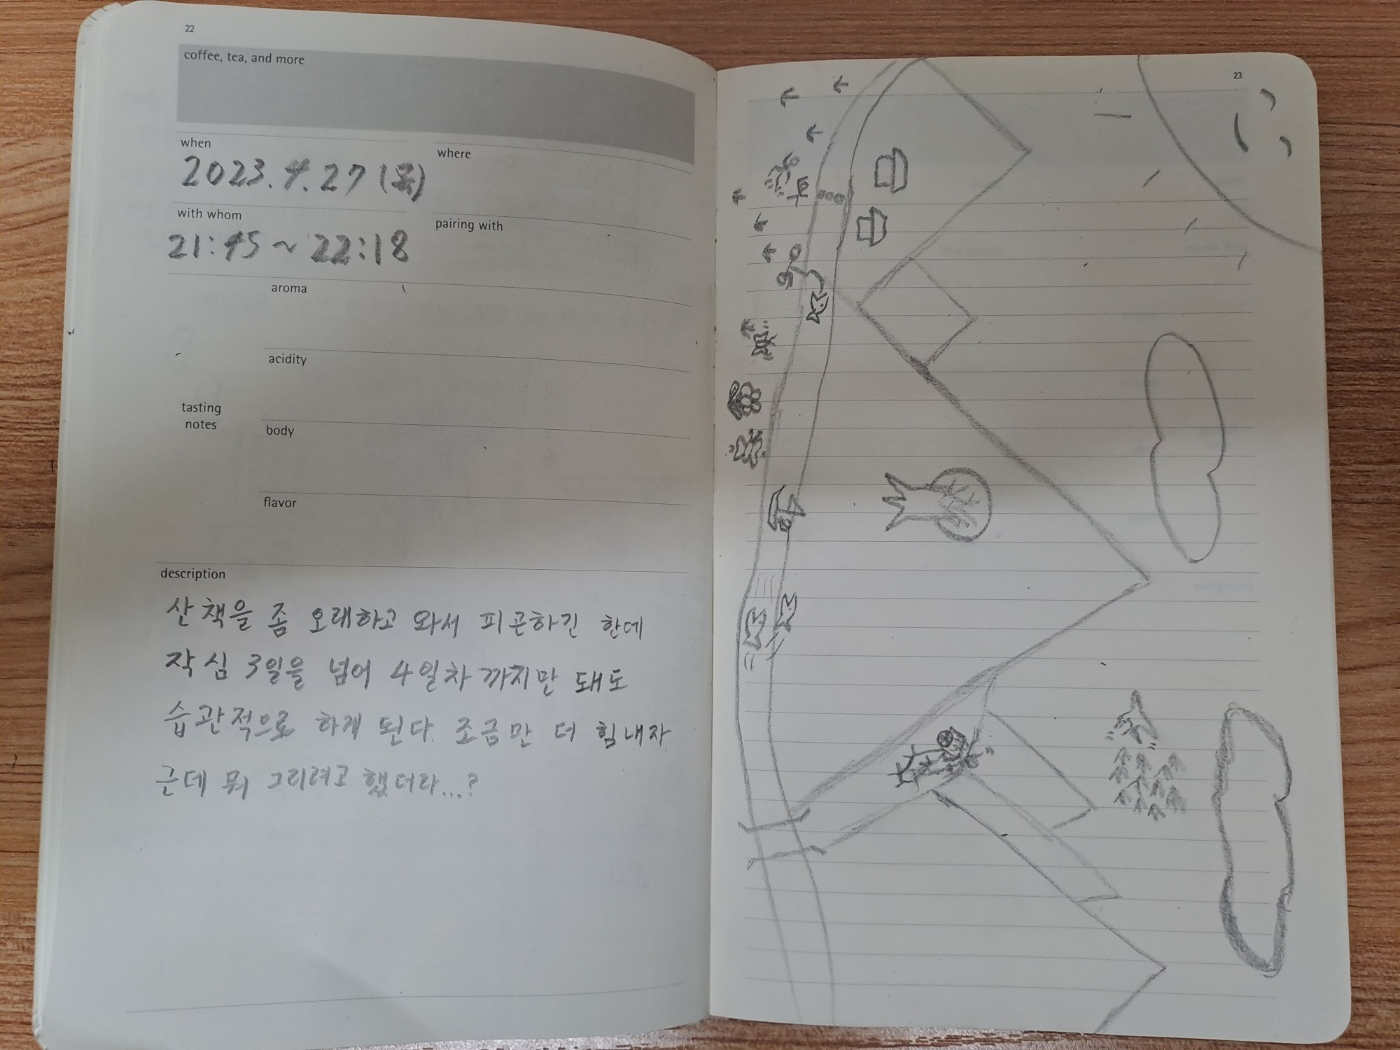 22
coffee, tea, and more
when
where
2023.4.27 (목)
with whom
pairing with
21:45 ~ 22:18
aroma
acidity
tasting
notes
body
flavor
description
산책을 좀 오래하고 와서 피곤하긴 한데
작심 3일을 넘어 4일차 까지만 돼도
습관적으로 하게 된다. 조금만 더 힘내자
근데 뭐 그리려고 했더라...?
23